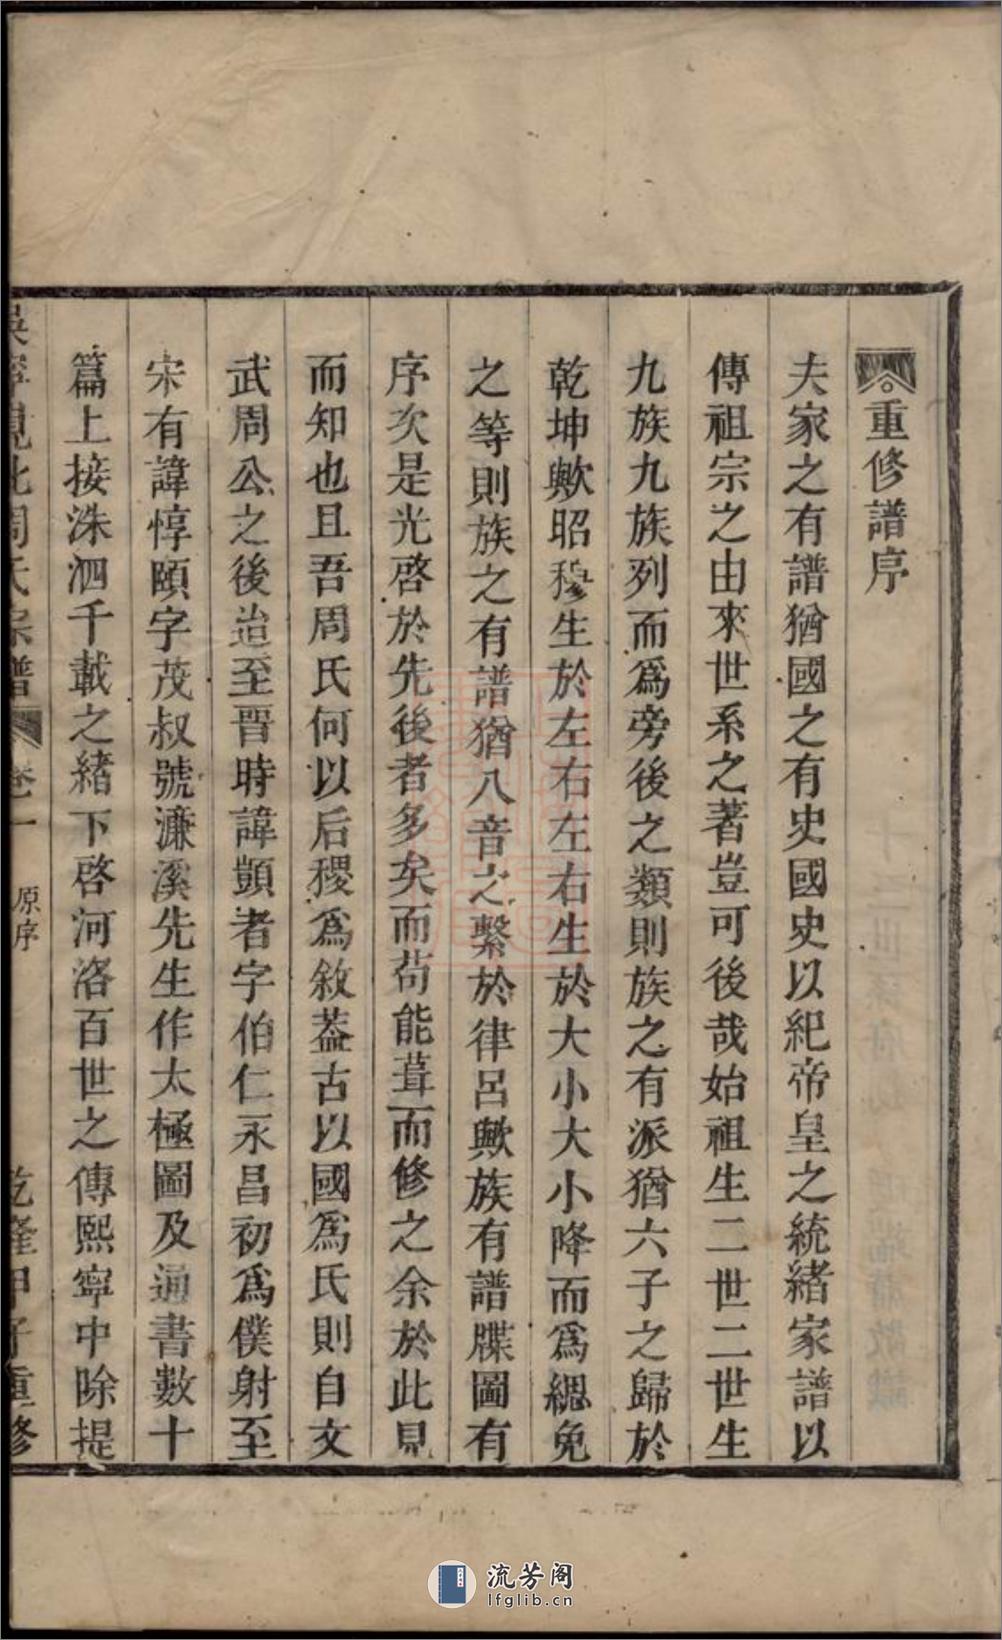 重修譜序
夫家之有譜猶國之有史國史以紀帝皇之統緒家譜以
傳祖宗之由來世系之著豈可後哉始祖生二世二世生
九族九族列而爲旁後之類則族之有派猶六子之歸於
乾坤歟昭穆生於左右左右生於大小大小降而爲緦免
之等則族之有譜猶八音之繫於律呂歟族有譜牒圖有
序次是光啓於先後者多矣而茍能葺而修之余於此見
而知也且吾周氏何以后稷爲敘葢古以國爲氏則自文
武周公之後迨至晋時諱顗者字伯仁永昌初爲僕射至
宋有諱惇頤字茂叔號濂溪先生作太極圖及通書數十
篇上接洙泗千載之緒下啓河洛百世之傳熙寧中除提
吳寧峴北周氏宗譜 卷一 原序 乾隆甲子重修
流芳阁
lfglib.cn